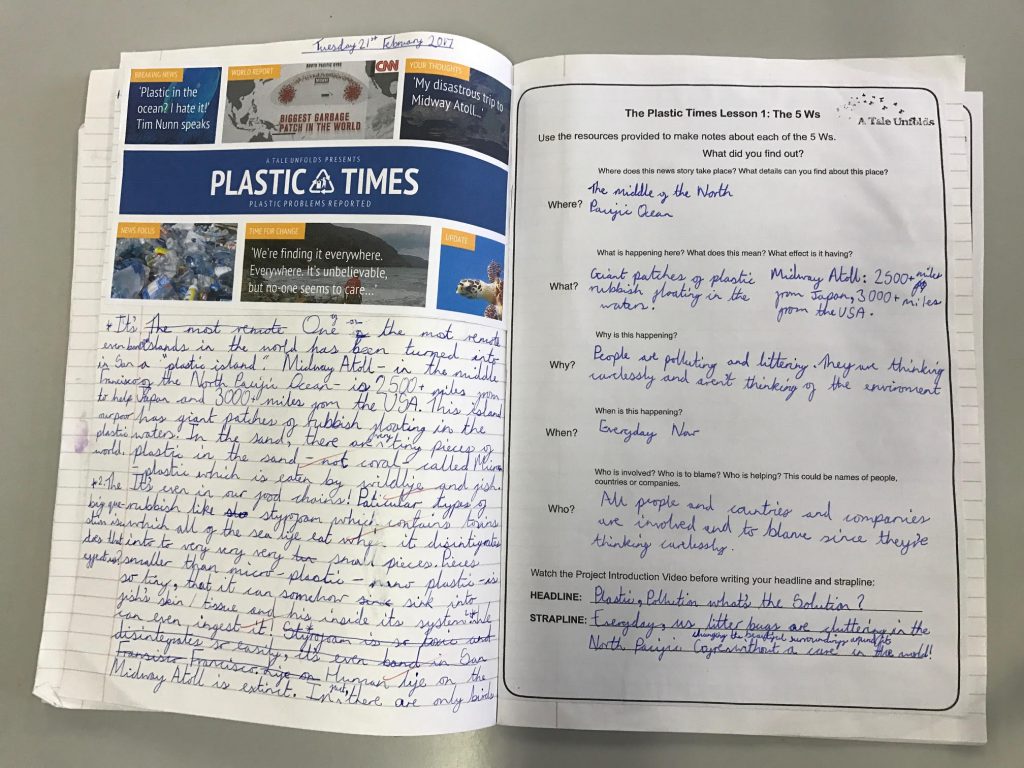 Tuesday 21st February 2017
BREAKING NEWS
'Plastic in the
ocean? I hate it!'
Tim Nunn speaks
WORLD REPORT
NORTH PACIFIC GYRE
MIDWAY
CNN
BIGGEST GARBAGE
PATCH IN THE WORLD
YOUR THOUGHTS
'My disastrous trip to
Midway Atoll...'
A TALE UNFOLDS PRESENTS
PLASTIC TIMES
PLASTIC PROBLEMS REPORTED
NEWS FOCUS
TIME FOR CHANGE
'We're finding it everywhere.
Everywhere. It's unbelievable,
but no-one seems to care...'
UPDATE
The most remote One of the most remote
islands in the world has been turned into
a "plastic island." Midway Atoll - in the middle
of the North Pacific Ocean - is 2500+ miles from
Japan and 3000+ miles from the USA. This island
has giant patches of rubbish floating in the
waters. In the sand, there are very tiny pieces of
plastic in the sand - not coral - called Micro
- plastic which is eaten by wildlife and fish.
It's even in our food chains! Paticular types of
rubbish like styrofoam which contains toxins
which all of the sea life eat when it disintigrates
into to very very very small pieces. Pieces
smaller than micro-plastic - nano plastic - is
so tiny, that it can somehow sink into
fish's skin/tissue and his inside its system. We
can even ingest it! Styrofoam is so toxic and
disintegrates so easily, it's even band in San
Francisco. Human life on the
Midway Atoll is extinct. In, there are only birds
*It's
even band
is San
Francisco
to help
our poor
plastic
world.
*2. The
big que-
stion is:
does that
effect us?
The Plastic Times Lesson 1: The 5 Ws
A Tale Unfolds
Use the resources provided to make notes about each of the 5 Ws.
What did you find out?
Where does this news story take place? What details can you find about this place?
Where?
The middle of the North
Pacific Ocean
What is happening here? What does this mean? What effect is it having?
What?
Giant patches of plastic
rubbish floating in the
waters.
Midway Atoll: 2500+ miles
from Japan, 3000+ miles
from the USA.
Why is this happening?
Why?
People are polluting and littering. They are thinking
curlessly and aren't thinking of the enviroment
When is this happening?
When?
Everyday Now
Who is involved? Who is to blame? Who is helping? This could be names of people,
countries or companies.
Who?
All people and countries and companies
are involved and to blame since they're
thinking curlessly.
Watch the Project Introduction Video before writing your headline and strapline:
HEADLINE: Plastic, Pollution what's the Solution?
STRAPLINE: Everyday, us litter bugs are cluttering in the
changing the beautiful surroundings around it
North Pacific Gyre without a care in the world!